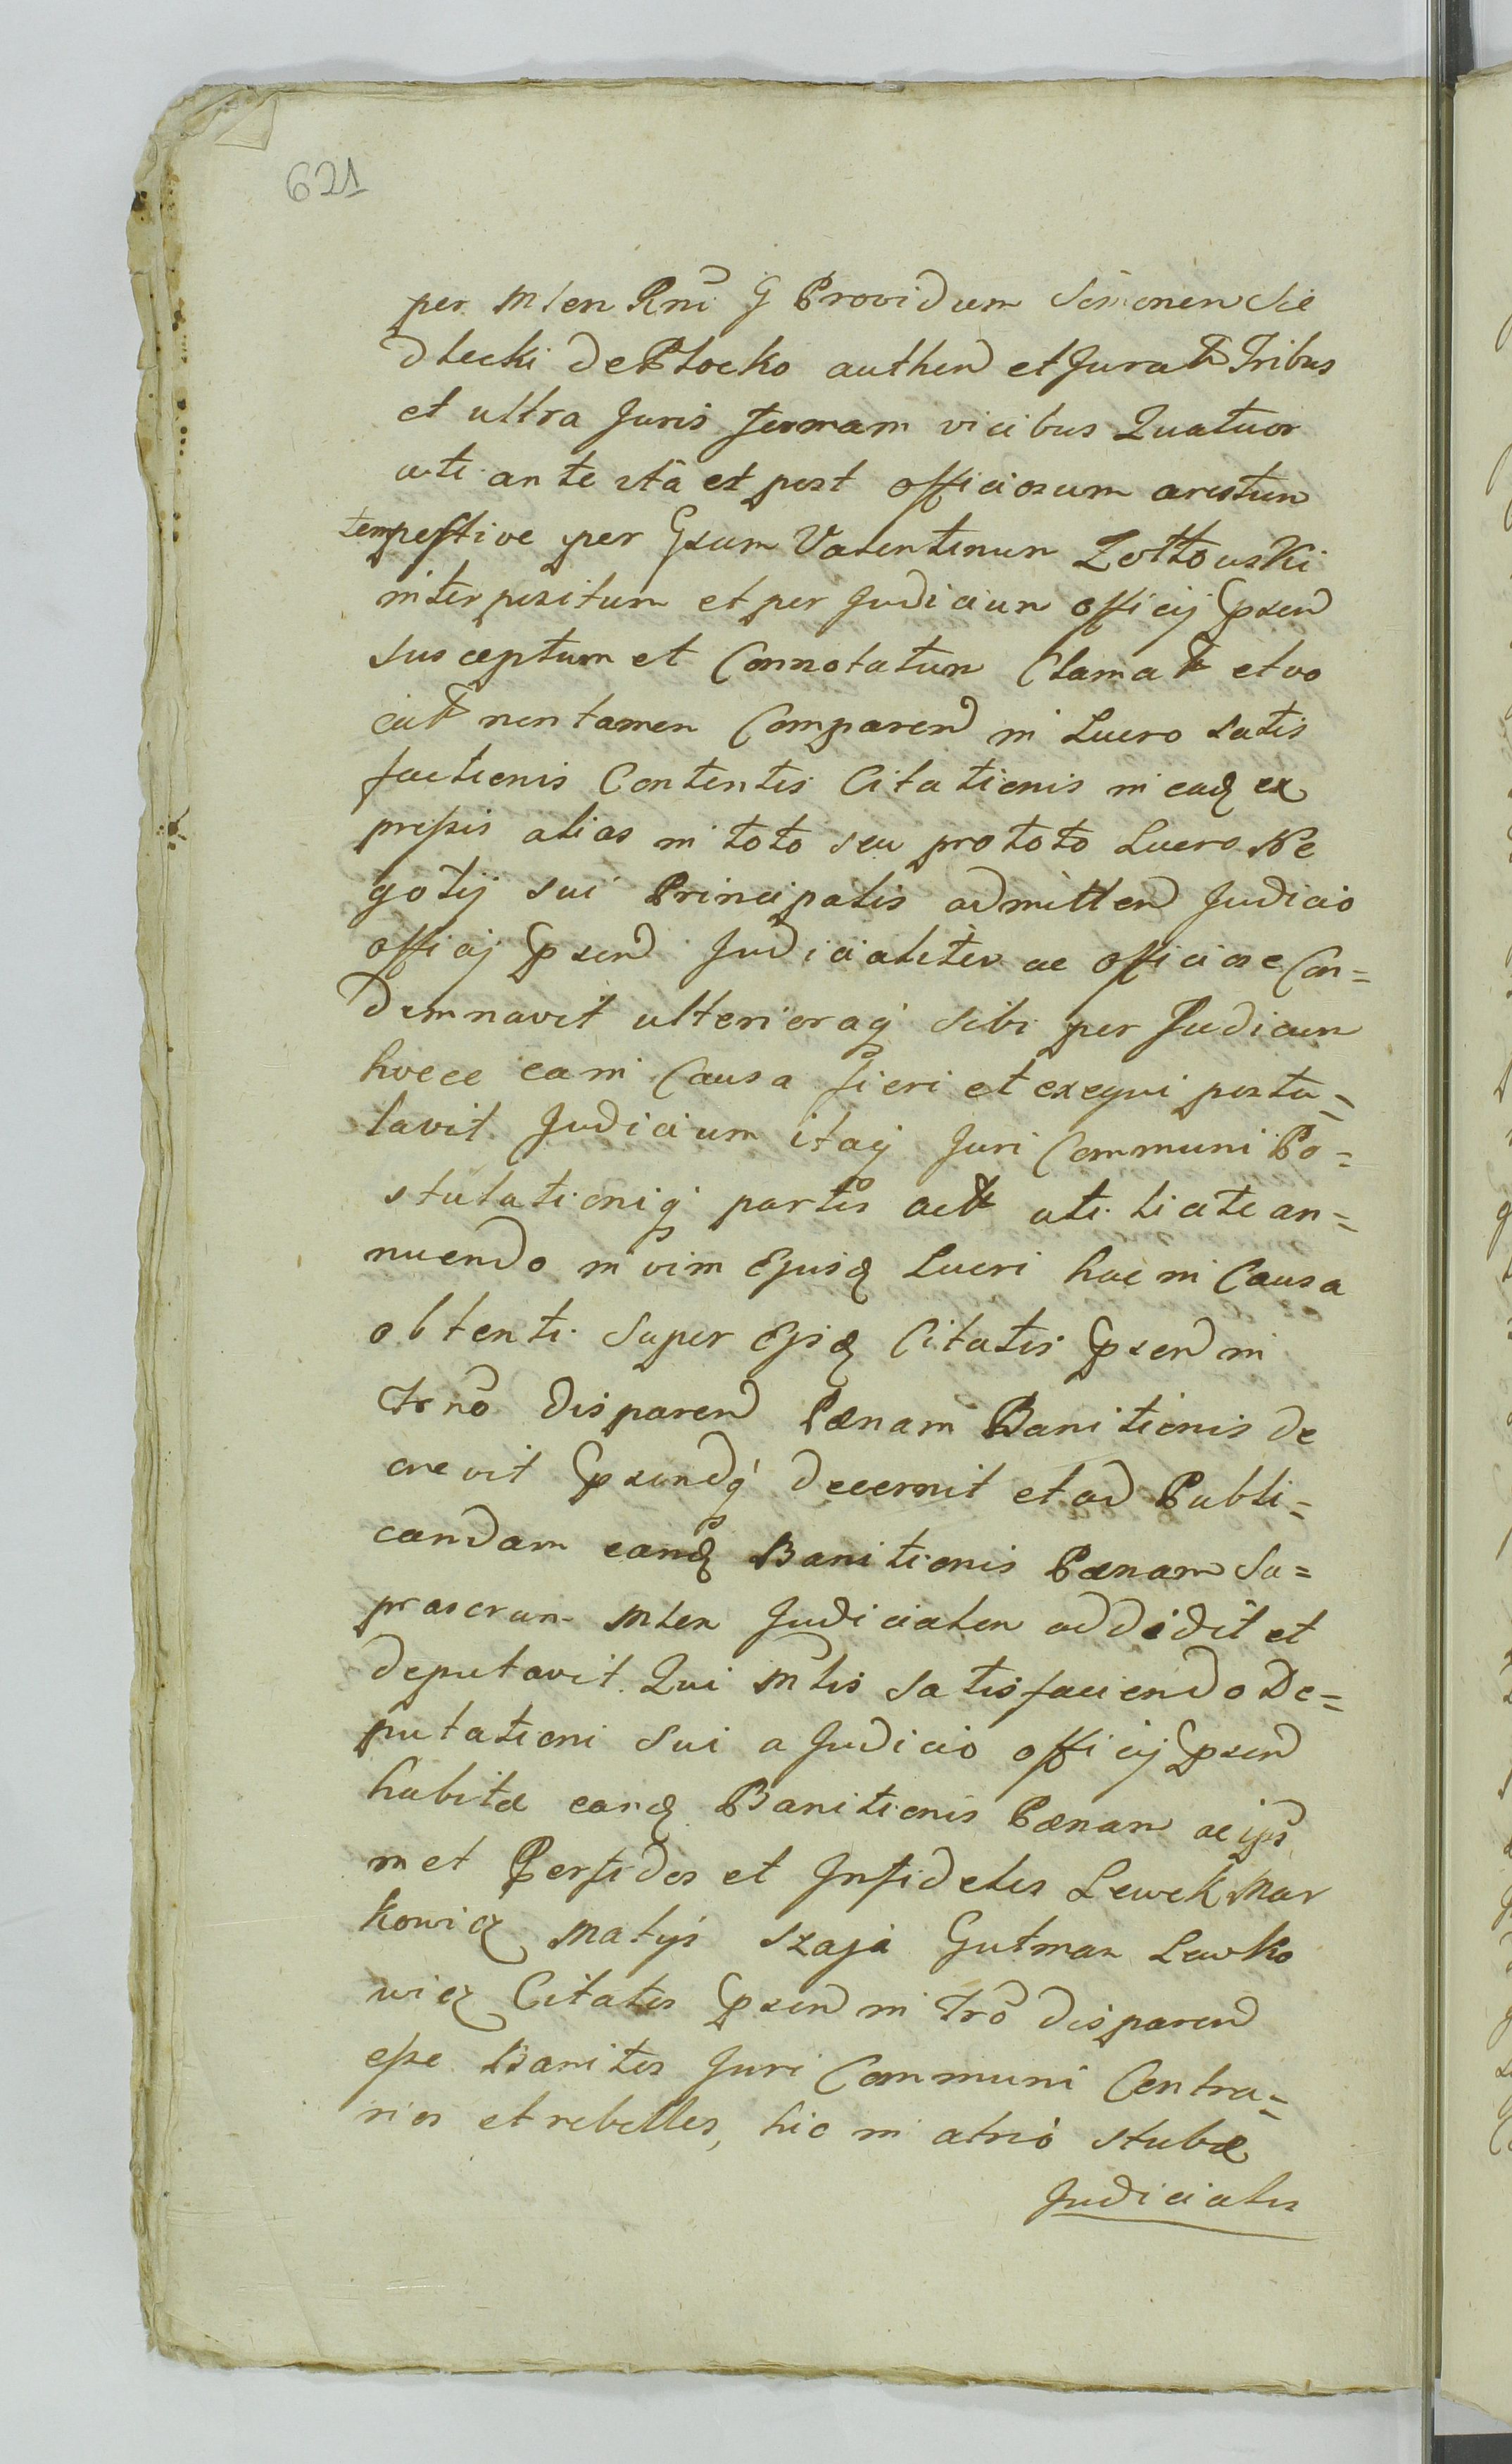 621
per Mlen Rni G Providum Simonem Sie
dlecki de Plocko authen et Jurat Tribus
et ultra Juris formam vicibus Quatuor
uti ante ita et post officiosum arestum
tempestive per Gsum Valentinum Zołtowski
interpositum et per Judicium officij Gpsen
susceptum et Connotatum Clamat et vo
cat non tamen Comparen in Lucro satis
factionis Contentis Citationis in eadz ex
pressis alias in toto seu pro toto Lucro Ne
gotij sui Principalis admitten Judicio
officij Gpsen Judicialiter ac officiose Con=
demnavit ulterioraq sibi per Judicium
hocce ea in Causa fieri et exequi postu=
lavit Judicium itaq Juri Communi Po=
stulationiq partis act uti licite an=
nuendo in vim Ejusd Lucri hac in Causa
obtenti Super Ejsd Citatis Gpsen in
Trno disparen Pænam Banitionis de
crevit Gpsendq decernit et ad Publi=
candam eandz Banitionis Pænam Su=
prascrum Mlem Judicialem addidit et
deputavit. Qui Mlis Satisfaciendo De=
putationi Sui a Judicio officij Gpsen
habitæ eandz Banitionis Pænam ac ips
met Perfidos et Infideles Lewek Mar
kowicz Matys Szaja Gutman Lewko
wicz Citatos Gpsen in Tro disparen
esse Banitos Juri Communi Contra=
rios et rebelles, hic in atrio stubæ
Judicialis